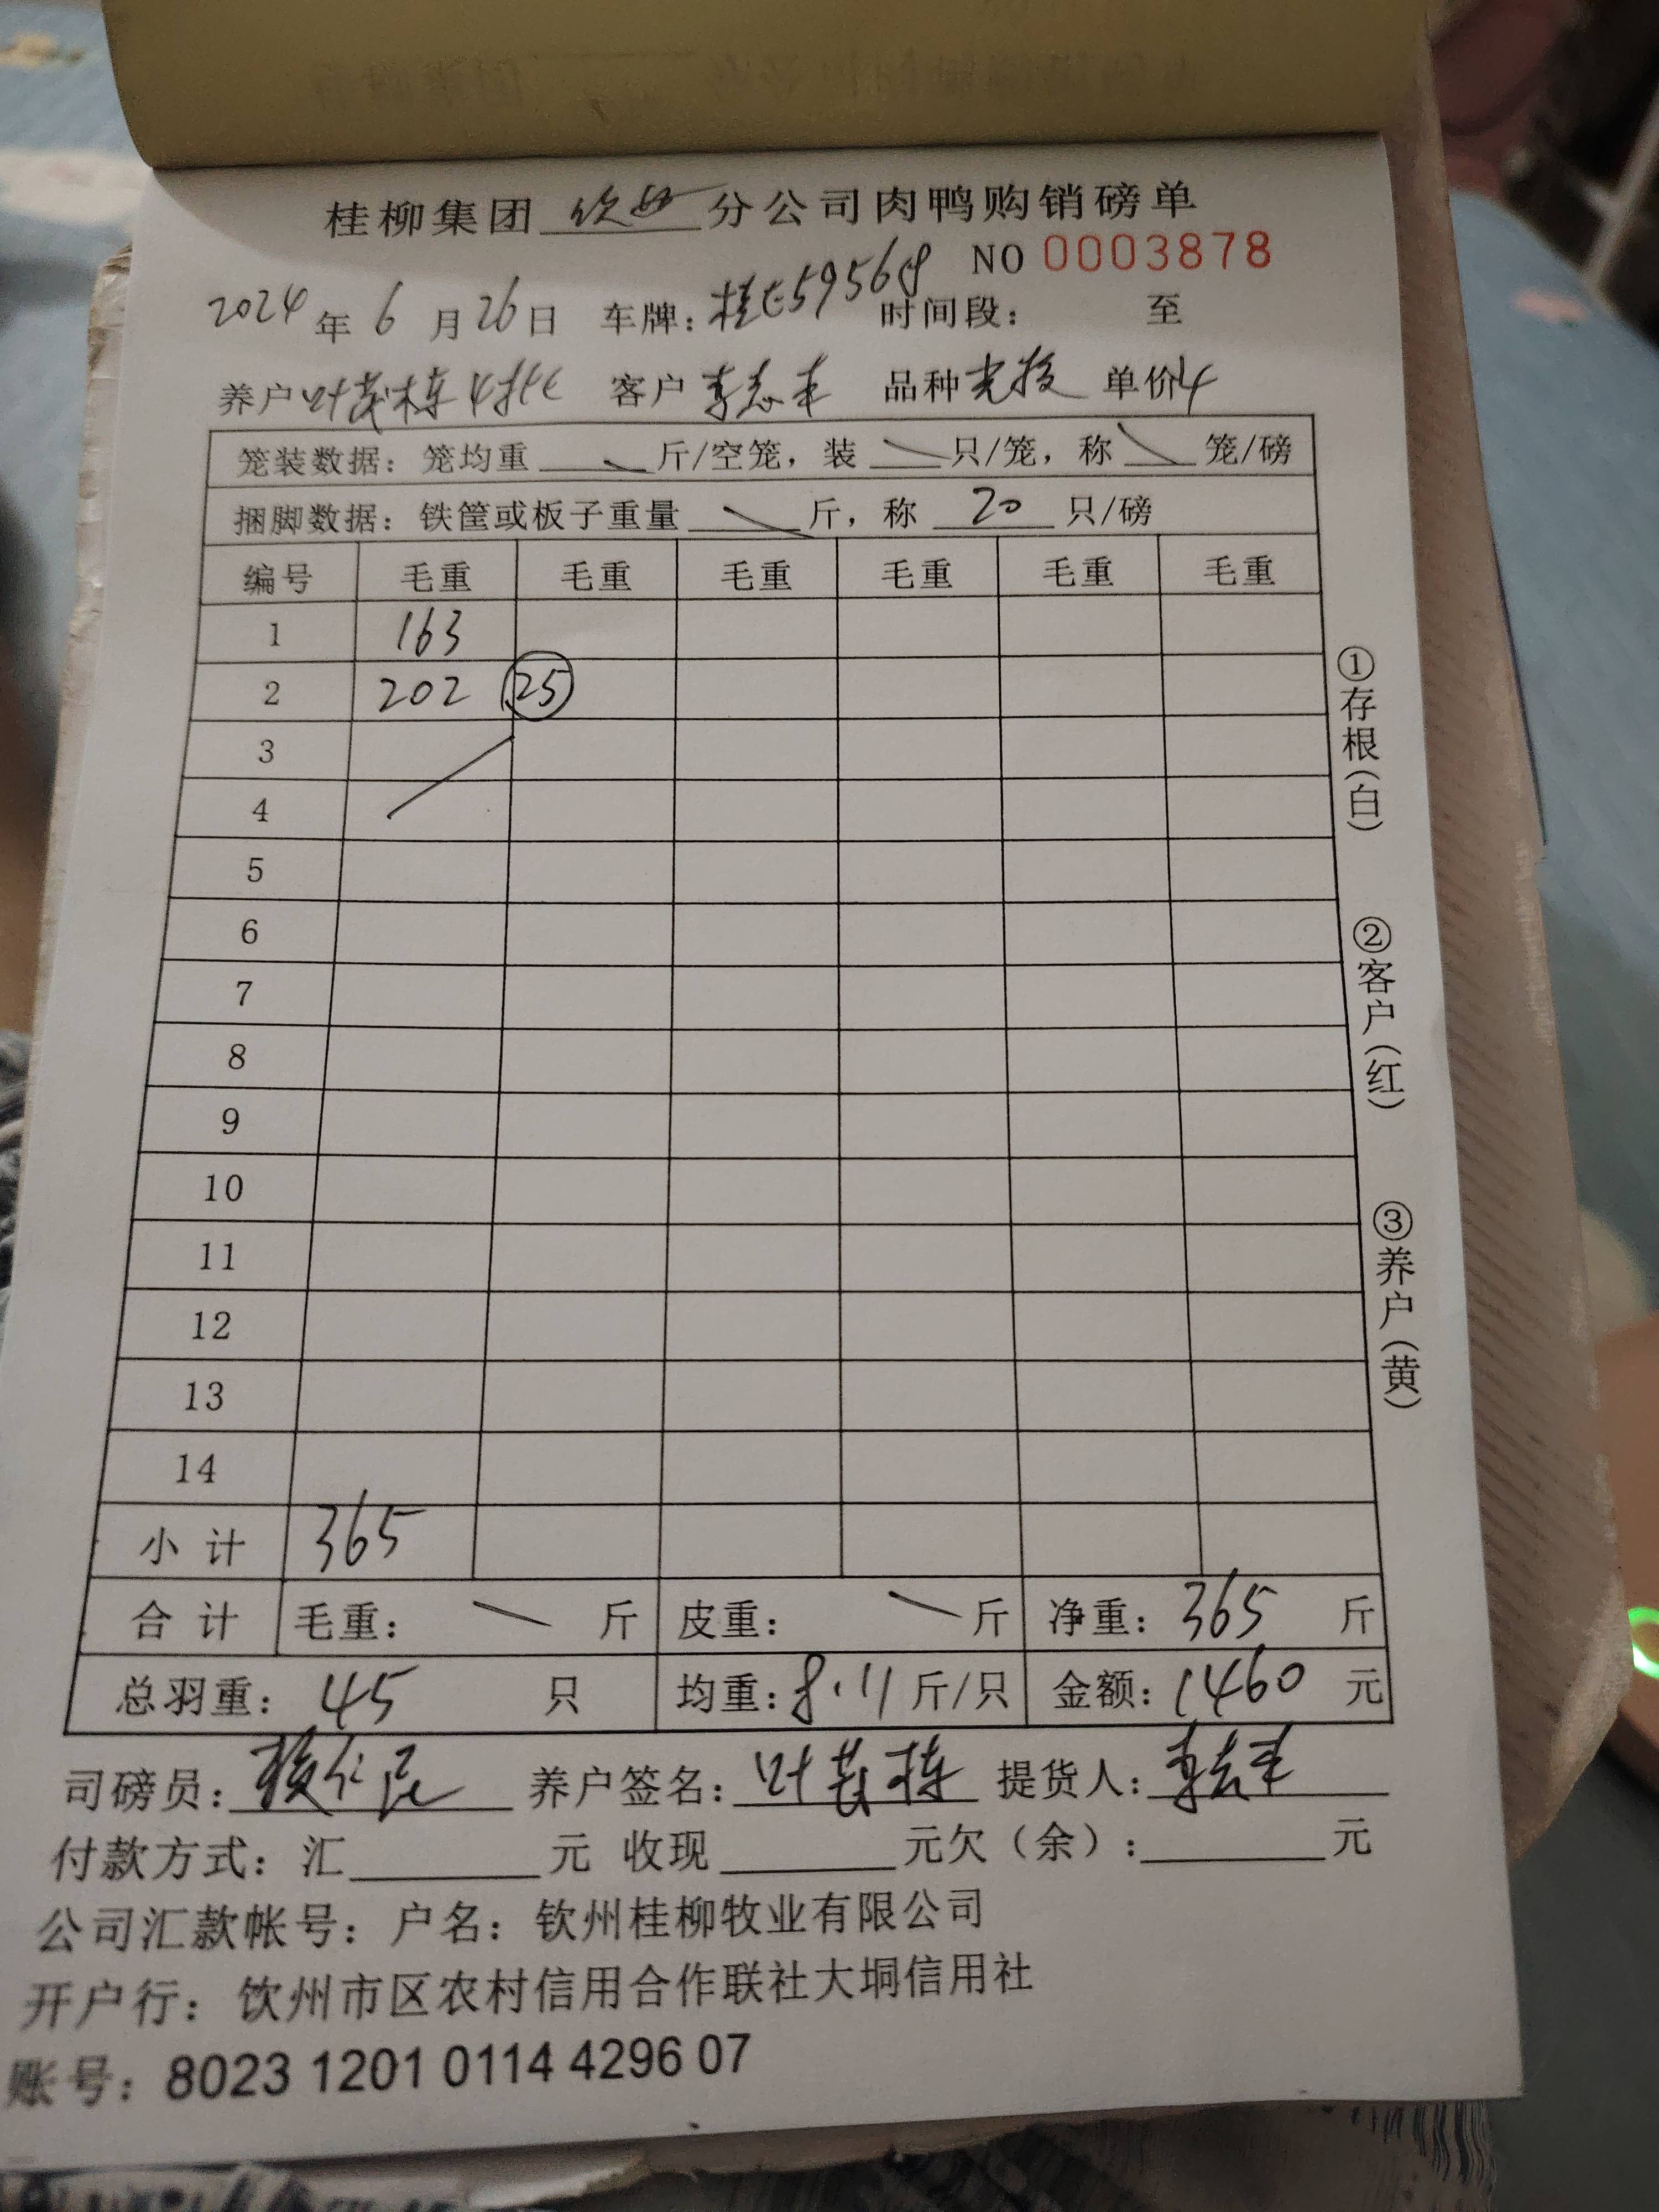 桂柳集团 钦州 分公司肉鸭购销磅单
NO 0003878
2024 年 6 月 26 日 车牌: 桂E59568 时间段: 至
养户 叶茂栋 客户 李志丰 品种 单价 4
笼装数据: 笼均重 斤/空笼, 装 只/笼, 称 笼/磅
捆脚数据: 铁筐或板子重量 斤, 称 20 只/磅
编号 毛重 毛重 毛重 毛重 毛重 毛重
1 163
2 202 25
3
4
5
6
7
8
9
10
11
12
13
14
小计 365
合计 毛重: 斤 皮重: 斤 净重: 365 斤
总羽重: 45 只 均重: 8.11 斤/只 金额: 1460 元
司磅员: 养户签名: 叶茂栋 提货人: 李志丰
付款方式: 汇 元 收现 元欠(余): 元
公司汇款帐号: 户名: 钦州桂柳牧业有限公司
开户行: 钦州市区农村信用合作联社大垌信用社
账号: 8023 1201 0114 4296 07
①存根(白)
②客户(红)
③养户(黄)